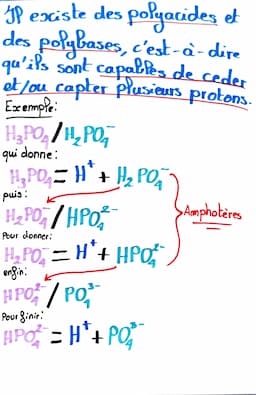 Il existe des polyacides et
des polybases, c'est-à-dire
qu'ils sont capables de ceder
et/ou capter plusieurs protons.
Exemple:
H₃PO₄/H₂PO₄⁻
qui donne:
H₃PO₄ = H⁺ + H₂PO₄⁻
puis:
H₂PO₄⁻/HPO₄²⁻
Amphotères
Pour donner:
H₂PO₄⁻ = H⁺ + HPO₄²⁻
enfin:
HPO₄²⁻/PO₄³⁻
Pour finir:
HPO₄²⁻ = H⁺ + PO₄³⁻